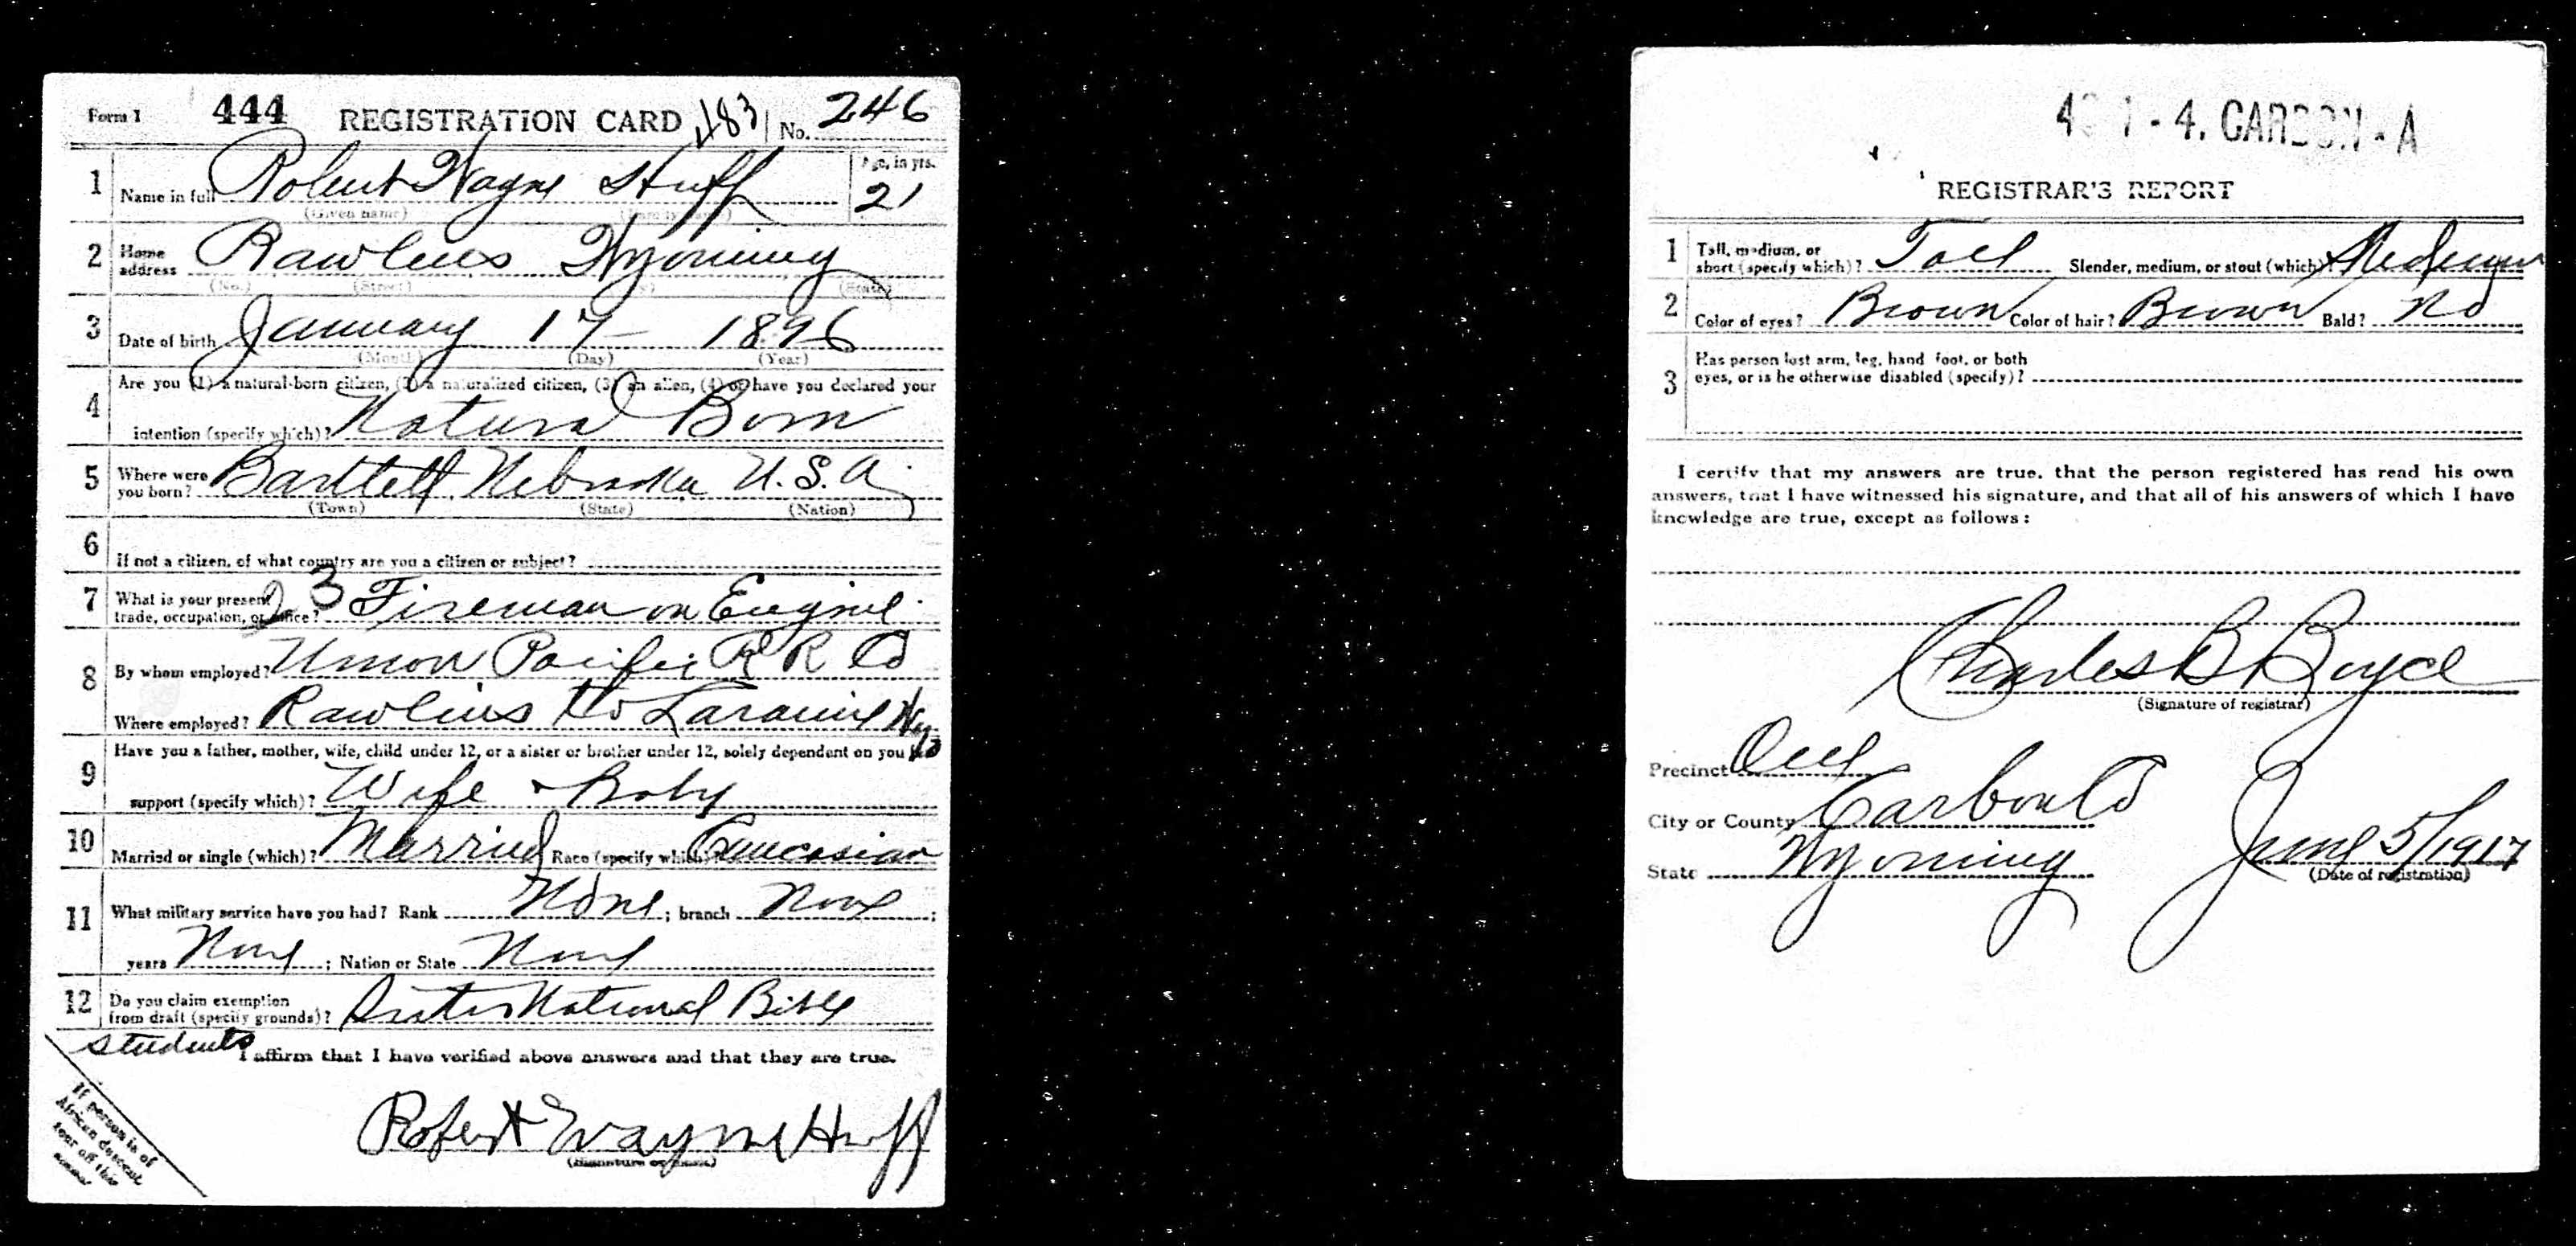 Form 1 444 REGISTRATION CARD 483 No. 246
1 Name in full Robert Wayne Huff Age, in yrs. 21
(Given name) (Family name)
2 Home address Rawlins Wyoming
(No.) (Street) (State)
3 Date of birth January 17 1896
(Month) (Day) (Year)
4 Are you (1) a natural-born citizen, (2) a naturalized citizen, (3) an alien, (4) or have you declared your
intention (specify which)? Natural Born
5 Where were you born? Bartlett Nebraska U.S.A.
(Town) (State) (Nation)
6 If not a citizen, of what country are you a citizen or subject?
7 What is your present trade, occupation, or office? 23 Fireman on Engine
8 By whom employed? Union Pacific R R Co
Where employed? Rawlins to Laramie Wyo
9 Have you a father, mother, wife, child under 12, or a sister or brother under 12, solely dependent on you for
support (specify which)? Wife & Baby
10 Married or single (which)? Married Race (specify which)? Caucasian
11 What military service have you had? Rank None ; branch None ;
years None ; Nation or State None
12 Do you claim exemption from draft (specify grounds)? Inter National Bible
students
I affirm that I have verified above answers and that they are true.
Robert Wayne Huff
(Signature or mark)
If person is of
African descent
tear off this
corner
4. CARBON - A
REGISTRAR'S REPORT
1 Tall, medium, or short (specify which)? Tall Slender, medium, or stout (which)? Medium
2 Color of eyes? Brown Color of hair? Brown Bald? No
3 Has person lost arm, leg, hand, foot, or both
eyes, or is he otherwise disabled (specify)?
I certify that my answers are true, that the person registered has read his own
answers, that I have witnessed his signature, and that all of his answers of which I have
knowledge are true, except as follows:
Charles B Boyce
(Signature of registrar)
Precinct
City or County Carbon Co
State Wyoming June 5/1917
(Date of registration)